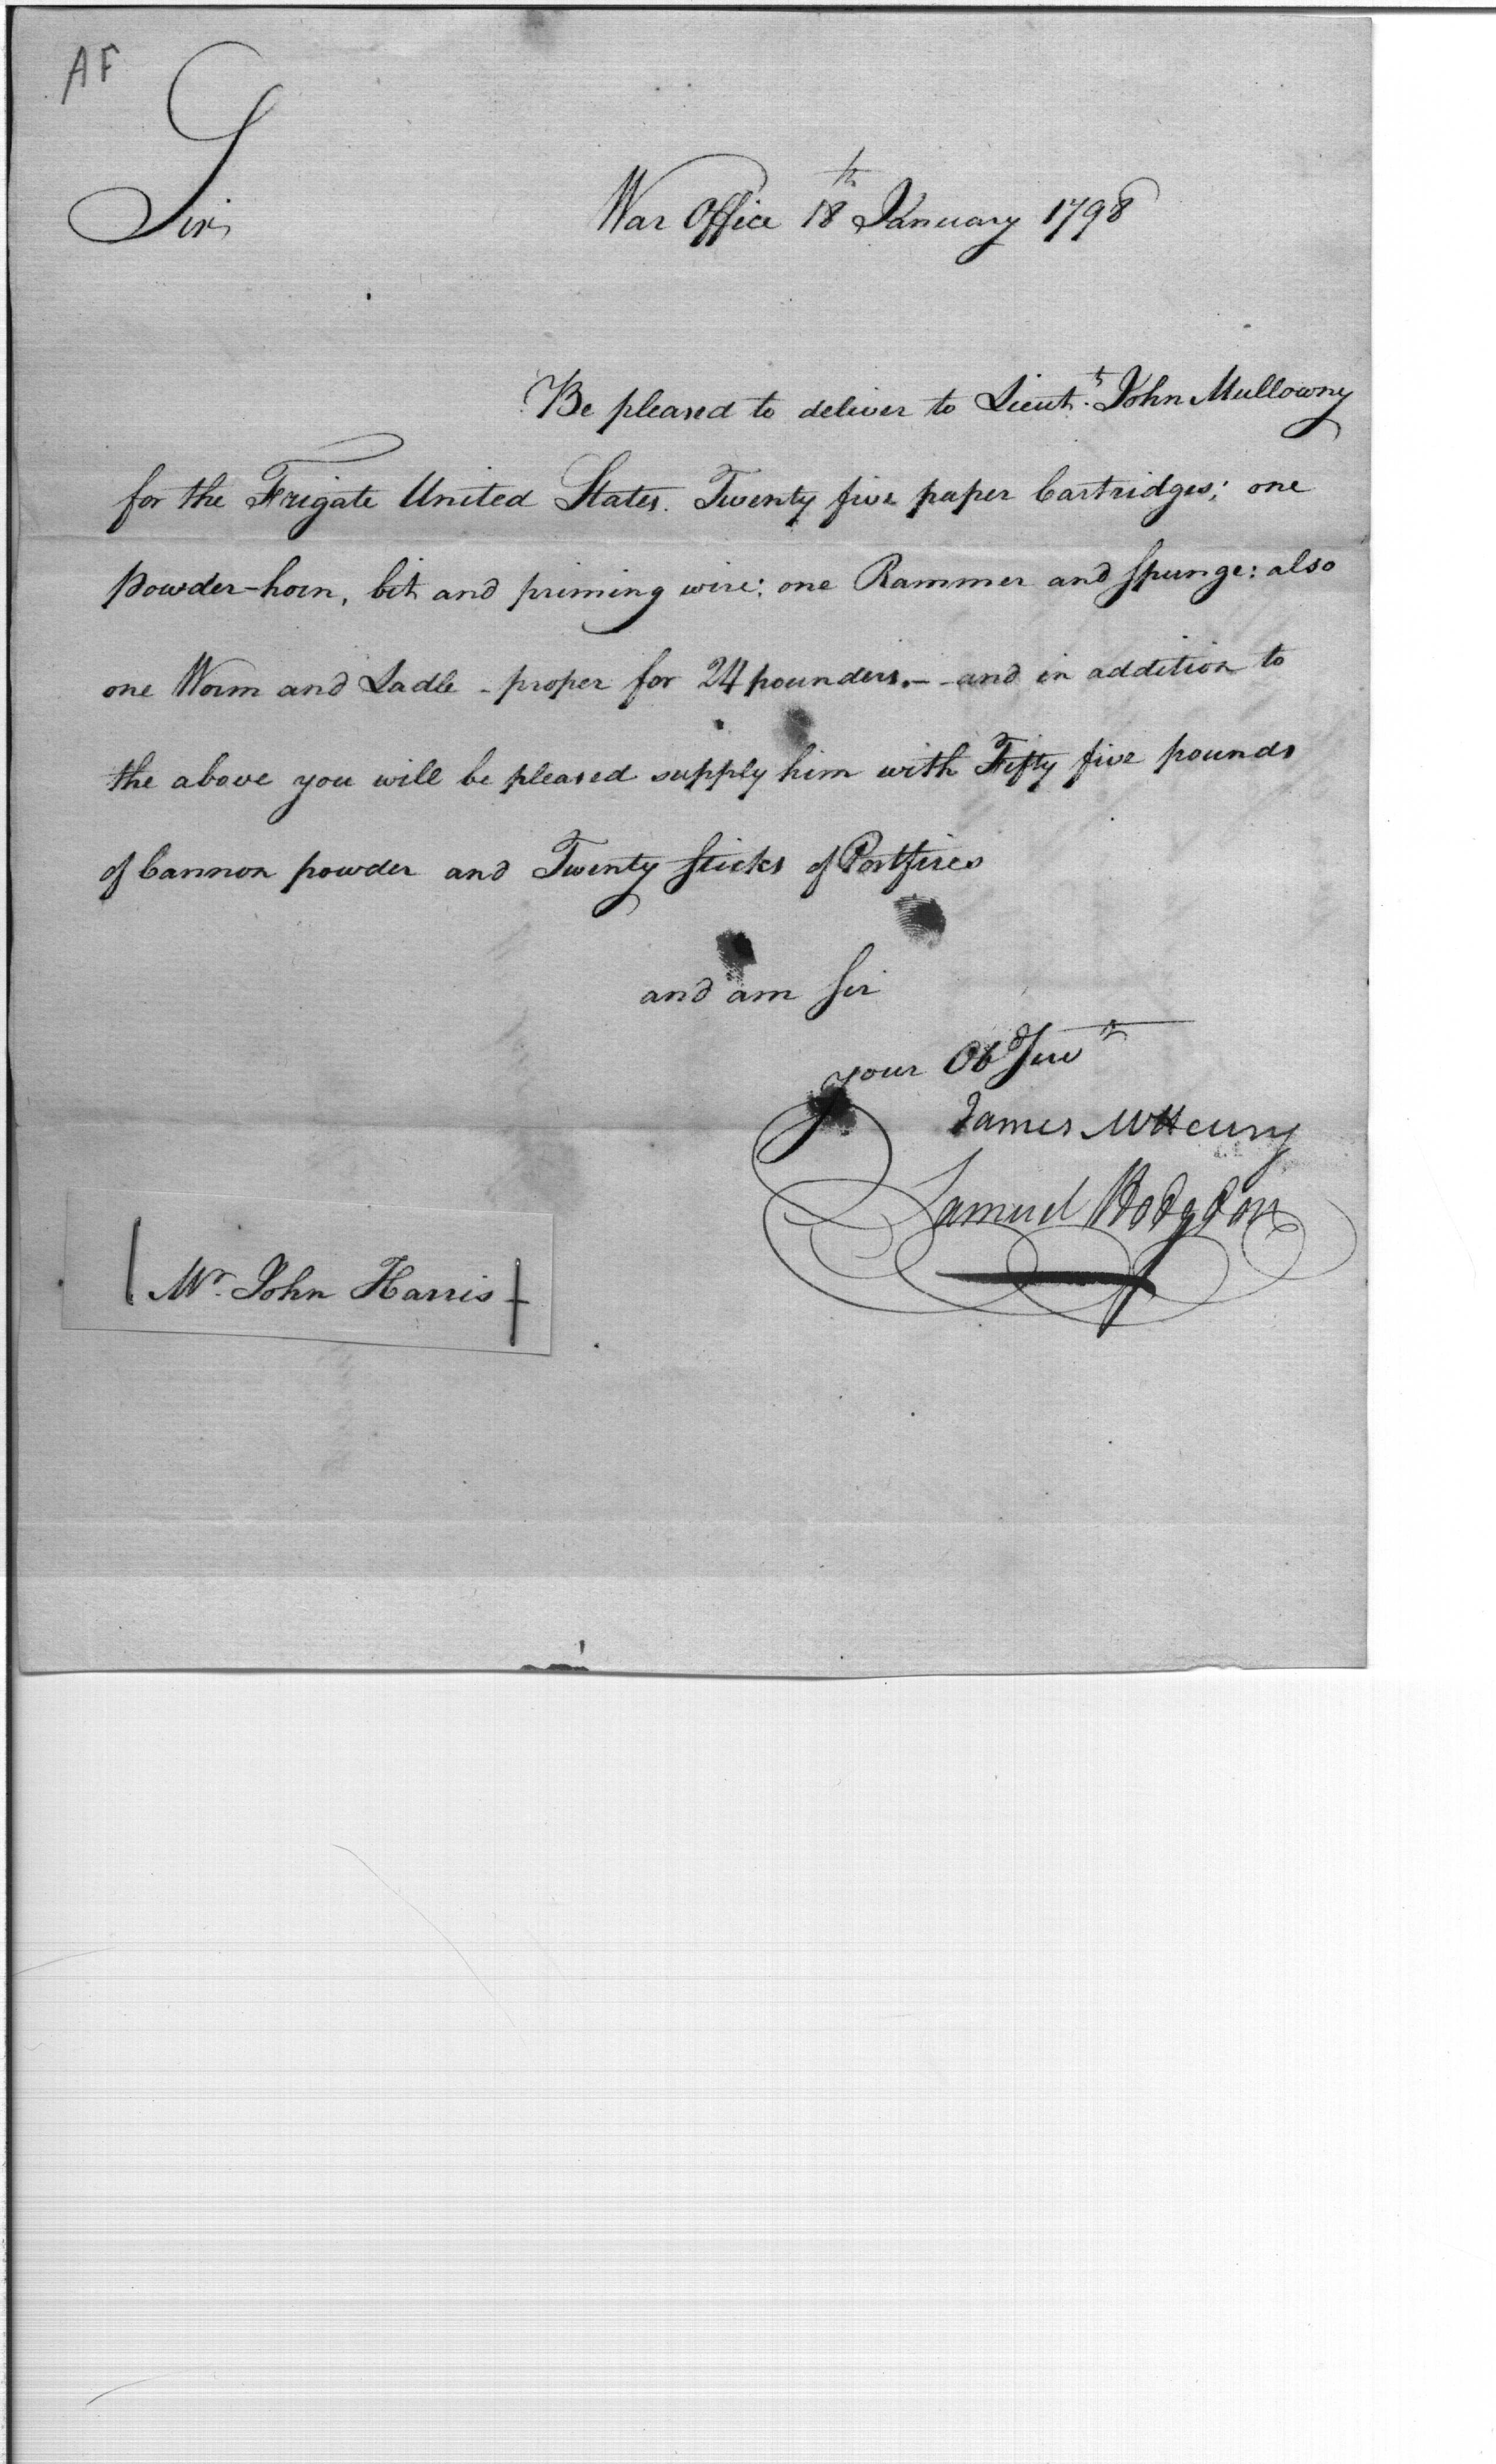 AF
Sir,
War Office 18th January 1798
Be pleased to deliver to Lieut.t John Mullowny
for the Frigate United States. Twenty five paper Cartridges; one
powder-horn, bit and priming wire; one Rammer and Spunge: also
one Worm and Ladle - proper for 24 pounders. - and in addition to
the above you will be pleased supply him with Fifty five pounds
of Cannon powder and Twenty sticks of Portfires
and am Sir
your Obd Servt
James McHenry
Samuel Hodgdon
Mr. John Harris